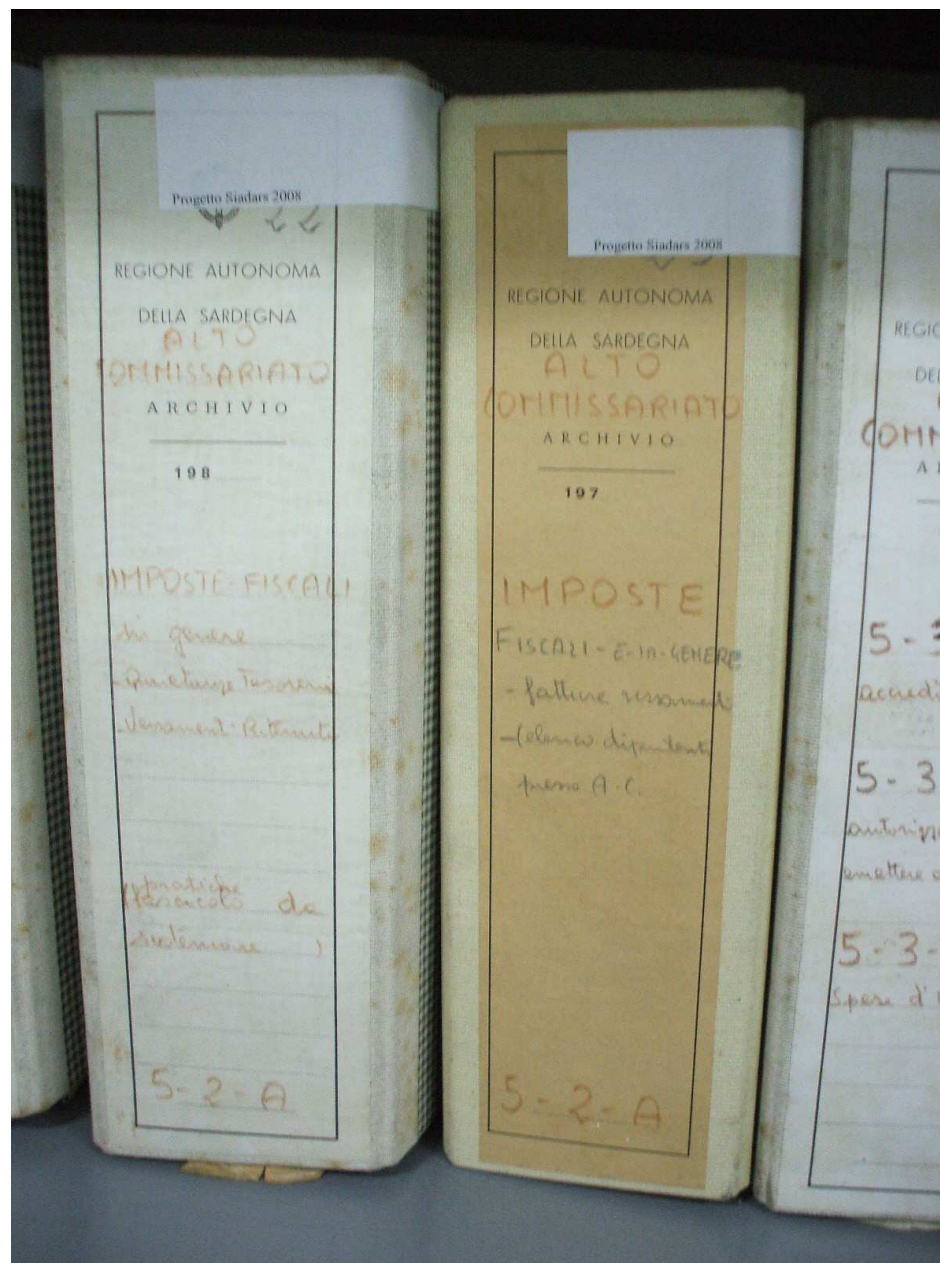 Progetto Siadars 2008
22
REGIONE AUTONOMA
DELLA SARDEGNA
ALTO
COMMISSARIATO
ARCHIVIO
198
IMPOSTE-FISCALI
in genere
- Quietanze Tesoreria
- Versament. Ritenute
(pratiche
fascicolo da
sistemare)
5-2-A
Progetto Siadars 2008
REGIONE AUTONOMA
DELLA SARDEGNA
ALTO
COMMISSARIATO
ARCHIVIO
197
IMPOSTE
FISCALI-E-IN-GENERE
- fatture
- (elenco dipendenti
presso A.C.
5-2-A
REGIO
DEL
COMM
A
5-3
accredi
5-3
emettere
5-3-
Spese d'